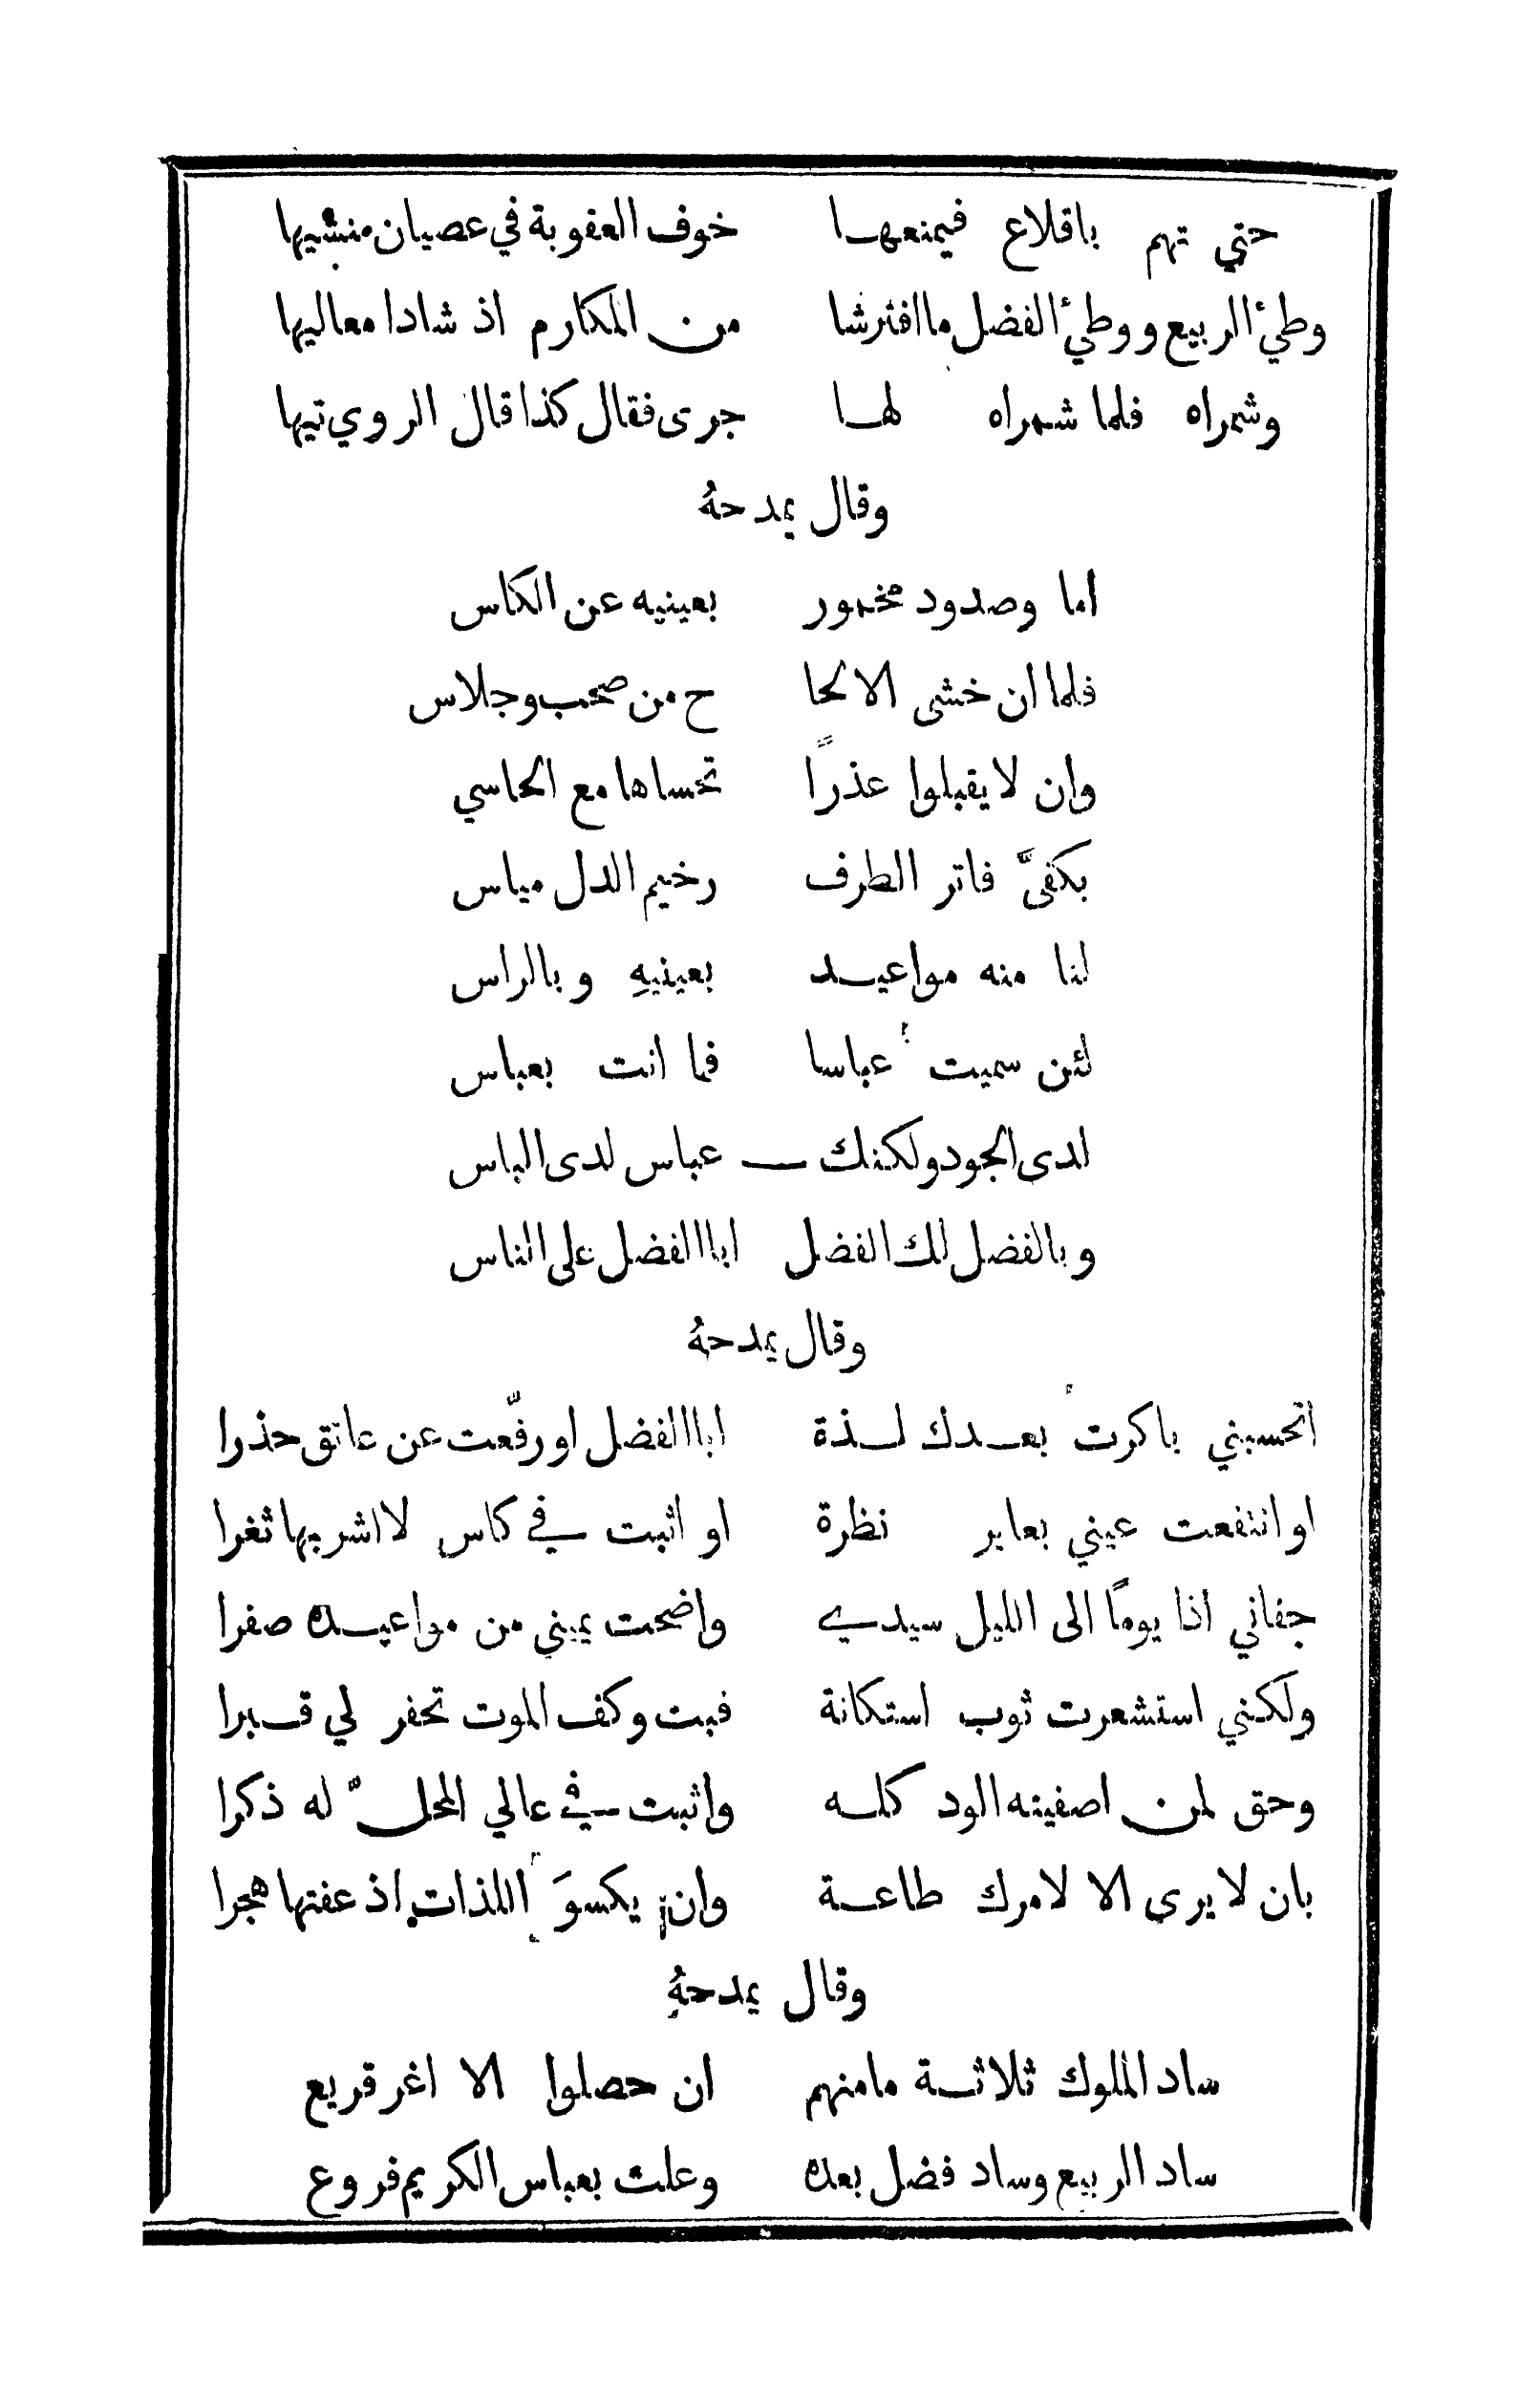 حتي تهم باقلاع فيمنعهـا خوف العقوبة في عصيان منشيها
وطيُ الربيع ووطيُ الفضل ما افترشا من المكارم اذ شادا معاليها
وشمراه فلما شمراه لهـا جرى فقال كذا قال الروي تيها
وقال يمدحهُ
اما وصدود مخمور بعينيه عن الكاس
فلما ان خشى الالحا ح من صحب وجلاس
وان لا يقبلوا عذرًا تحساها مع الحاسي
بكفىَّ فاتر الطرف رخيم الدل مياس
لنا منه مواعيـد بعينيهِ وبالراس
لئن سميت عباسا فما انت بعباس
لدى الجود ولكنك ـــ عباس لدى الباس
وبالفضل لك الفضل ابا الفضل على الناس
وقال يمدحهُ
اتحسبني باكرت بعـدك لـذة ابا الفضل او رفّعت عن عاتق حذرا
او انتفعت عيني بعابر نظرة او اثبت في كاس لاشربها ثغرا
جفاني اذا يومًا الى الليل سيدي واضحت يميني من مواعيـده صفرا
ولكنني استشعرت ثوب استكانة فبت وكف الموت تحفر لي قـبرا
وحق لمن اصفيته الود كلـه واثبت في عالي المحلّ له ذكرا
بان لا يرى الا لامرك طاعـة وان يكسوَ اللذات اذ عفتها هجرا
وقال يمدحهُ
ساد الملوك ثلاثـة ما منهم ان حصلوا الا اغر قريع
ساد الربيع وساد فضل بعده وعلت بعباس الكريم فروع